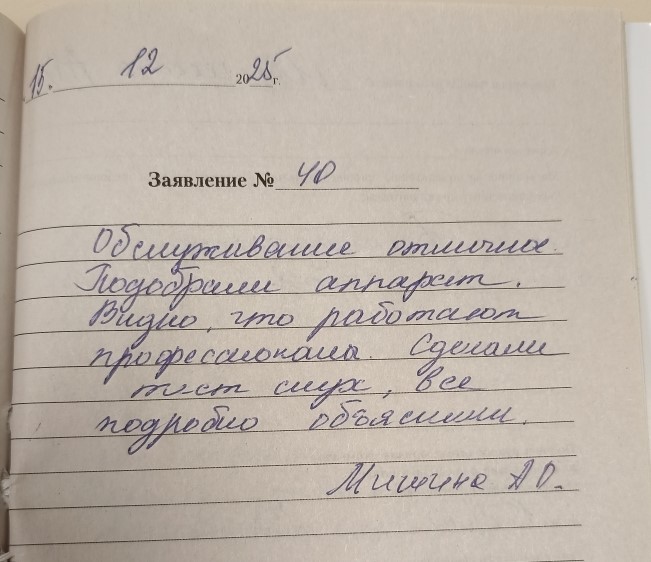 15. 12 2025г.
Заявление № 40
Обслуживание отличное.
Подобрали аппарат.
Видно, что работают
профессионалы. Сделали
тест слух, все
подробно объяснили.
Мишина А О.